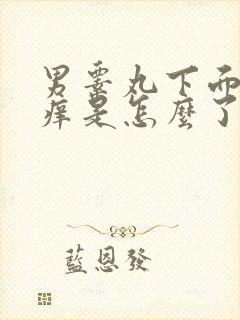 男睾丸下面
痒是怎麼了
藍恩發